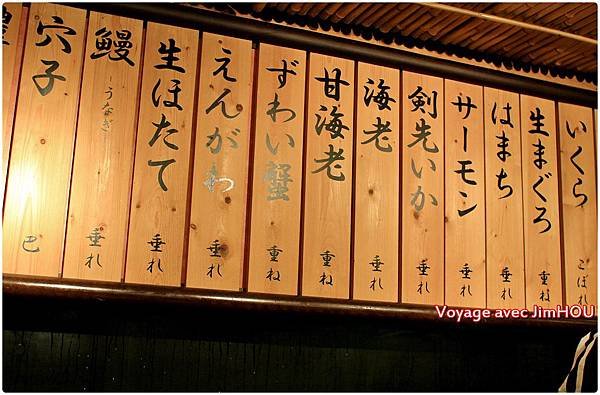 いくら こぼれ
生まぐろ 重ね
はまち 垂れ
サーモン 垂れ
剣先いか 垂れ
海老 垂れ
甘海老 重ね
ずわい蟹 重ね
えんがわ 垂れ
生ほたて 垂れ
鰻 -うなぎ
穴子 巴
Voyage avec JimHOU